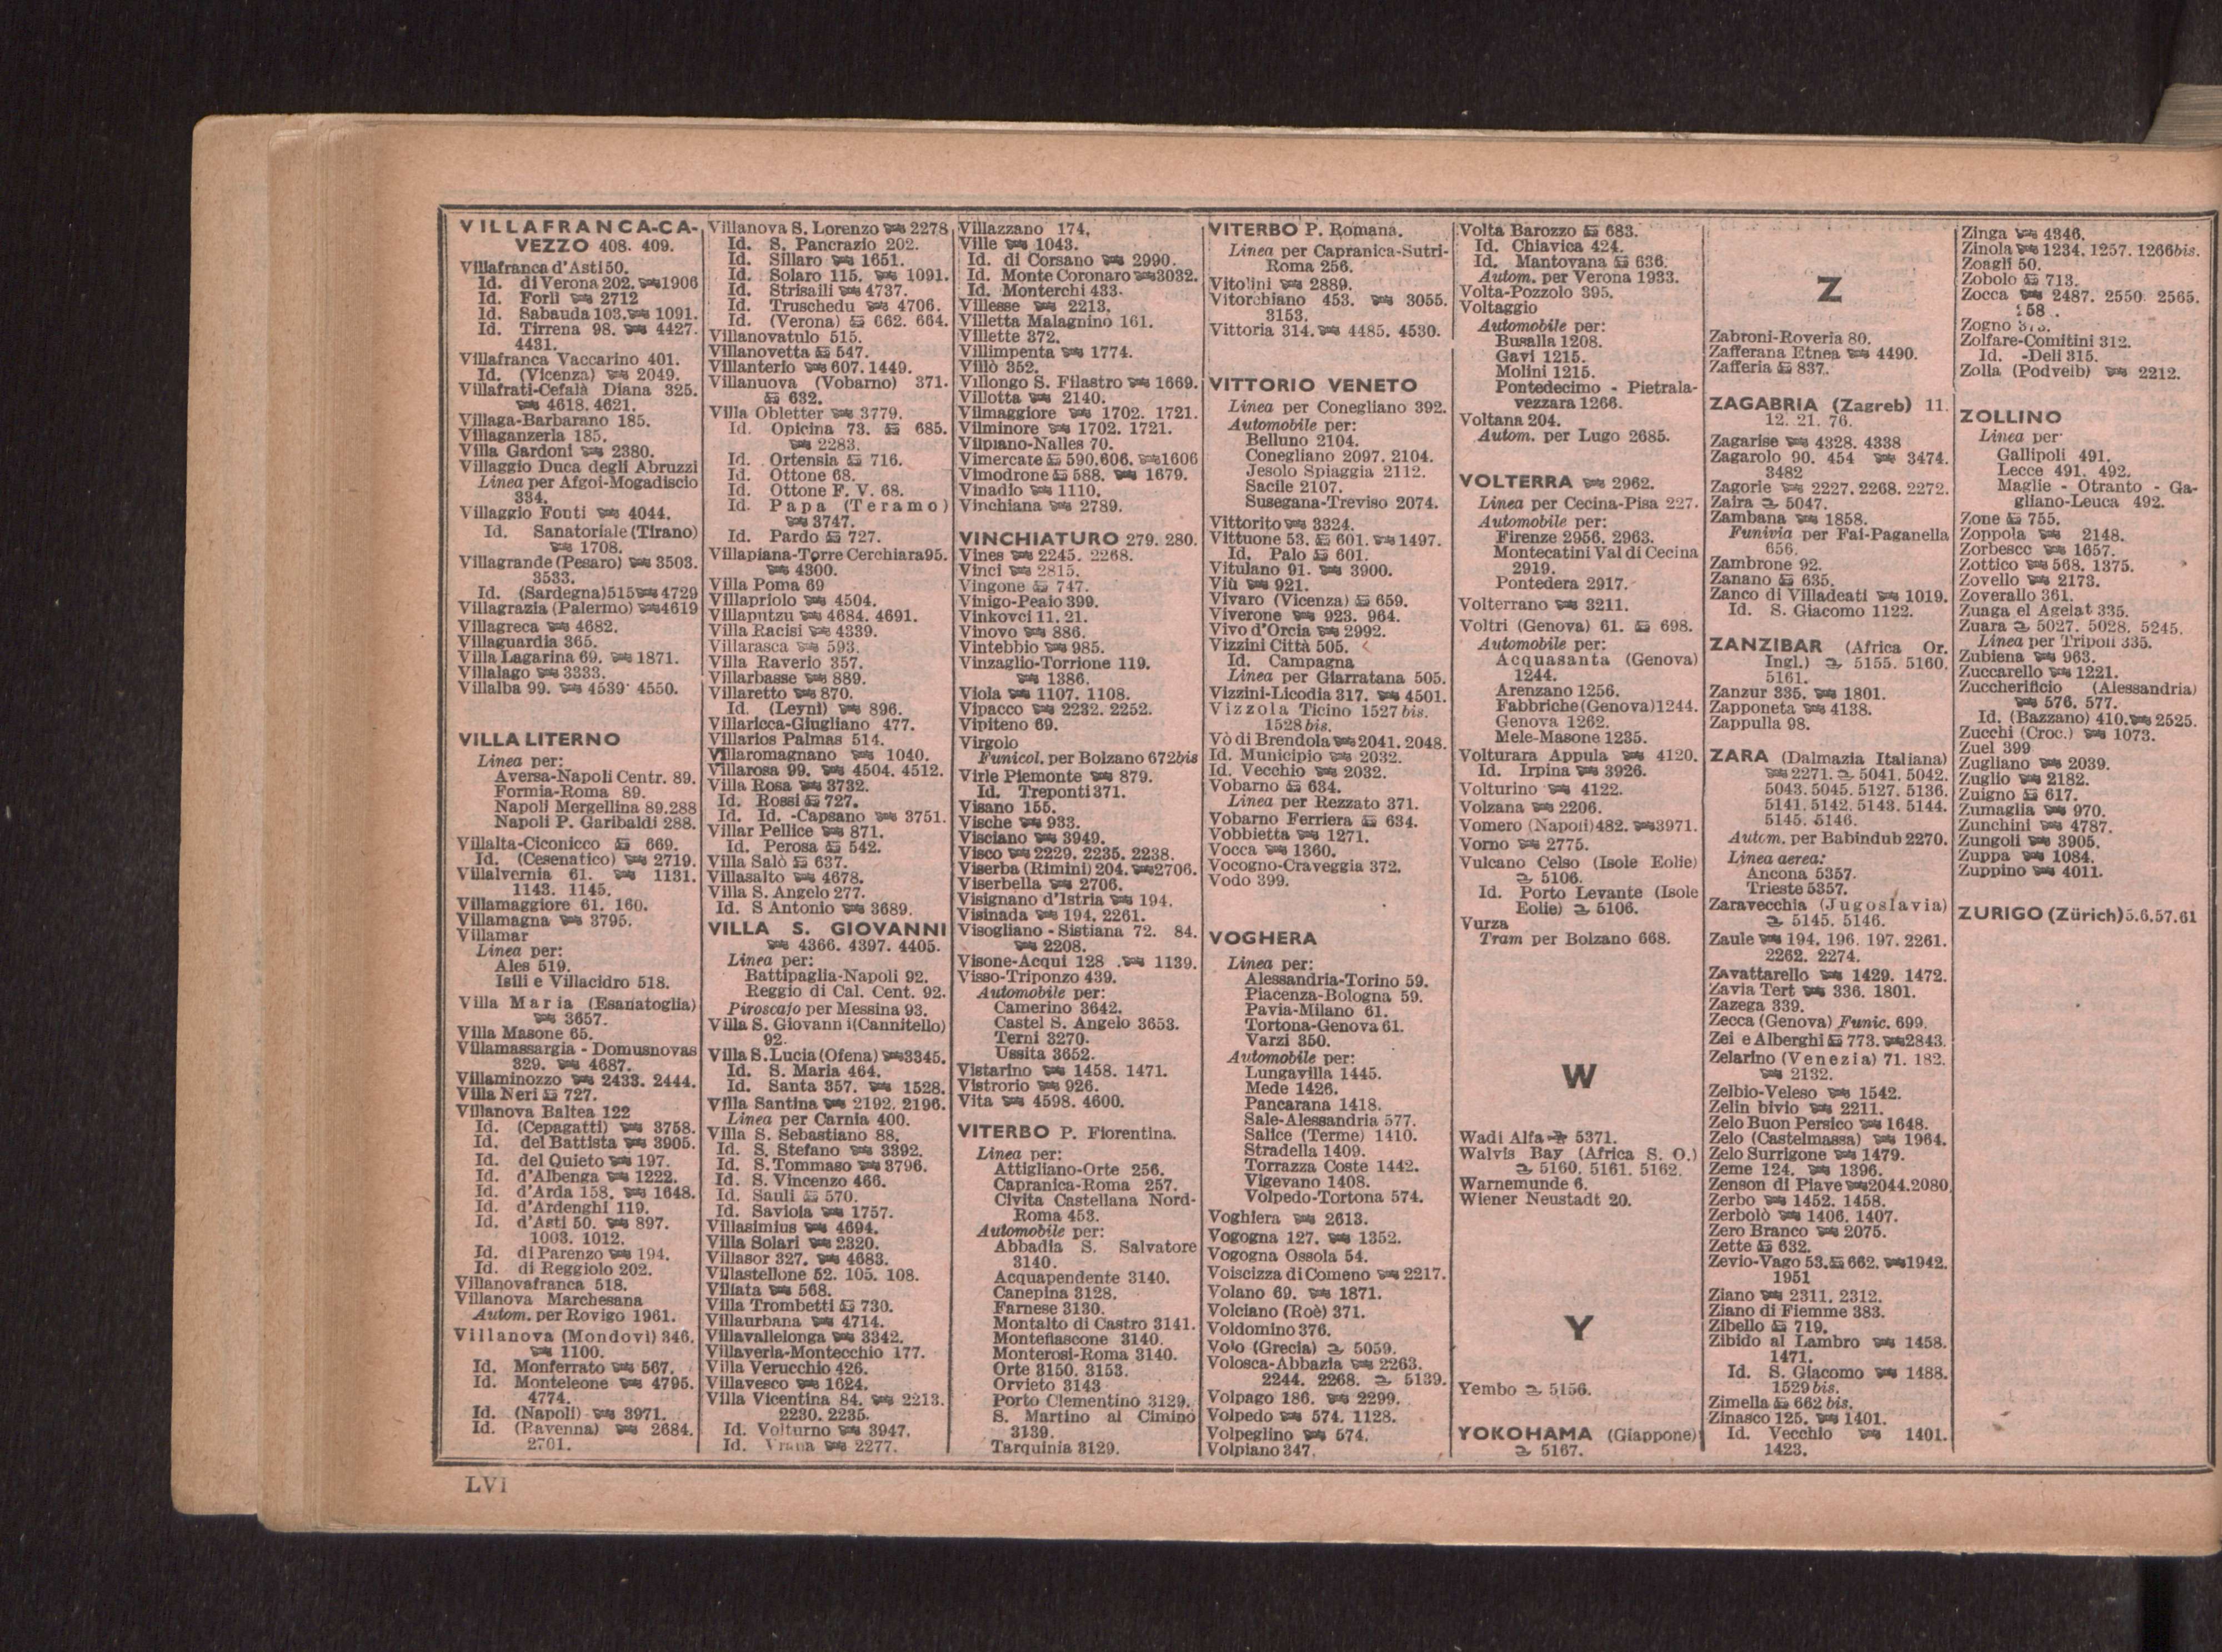 VILLAFRANCA-CA-
VEZZO 408. 409.
Villafranca d'Asti 50.
Id. di Verona 202. 1906
Id. Forlì 2712
Id. Sabauda 103. 1091.
Id. Tirrena 98. 4427.
4431.
Villafranca Vaccarino 401.
Id. (Vicenza) 2049.
Villafrati-Cefalà Diana 325.
4618. 4621.
Villaga-Barbarano 185.
Villaganzerla 185.
Villa Gardoni 2380.
Villaggio Duca degli Abruzzi
Linea per Afgoi-Mogadiscio
334.
Villaggio Fonti 4044.
Id. Sanatoriale (Tirano)
1708.
Villagrande (Pesaro) 3503.
3533.
Id. (Sardegna) 515 4729
Villagrazia (Palermo) 4619
Villagreca 4682.
Villaguardia 365.
Villa Lagarina 69. 1871.
Villalago 3333.
Villalba 99. 4539. 4550.
VILLA LITERNO
Linea per:
Aversa-Napoli Centr. 89.
Formia-Roma 89.
Napoli Mergellina 89.288
Napoli P. Garibaldi 288.
Villalta-Ciconicco 669.
Id. (Cesenatico) 2719.
Villalvernia 61. 1131.
1143. 1145.
Villamaggiore 61. 160.
Villamagna 3795.
Villamar
Linea per:
Ales 519.
Isili e Villacidro 518.
Villa Maria (Esanatoglia)
3657.
Villa Masone 65.
Villamassargia - Domusnovas
329. 4687.
Villaminozzo 2433. 2444.
Villa Neri 727.
Villanova Baltea 122
Id. (Cepagatti) 3758.
Id. del Battista 3905.
Id. del Quieto 197.
Id. d'Albenga 1222.
Id. d'Arda 158. 1648.
Id. d'Ardenghi 119.
Id. d'Asti 50. 897.
1003. 1012.
Id. di Parenzo 194.
Id. di Reggiolo 202.
Villanovafranca 518.
Villanova Marchesana
Autom. per Rovigo 1961.
Villanova (Mondovì) 346.
1100.
Id. Monferrato 567.
Id. Monteleone 4795.
4774.
Id. (Napoli) 3971.
Id. (Ravenna) 2684.
2701.
Villanova S. Lorenzo 2278
Id. S. Pancrazio 202.
Id. Sillaro 1651.
Id. Solaro 115. 1091.
Id. Strisaili 4737.
Id. Truschedu 4706.
Id. (Verona) 662. 664.
Villanovatulo 515.
Villanovetta 547.
Villanterio 607. 1449.
Villanuova (Vobarno) 371.
632.
Villa Obletter 3779.
Id. Opicina 73. 685.
2283.
Id. Ortensia 716.
Id. Ottone 68.
Id. Ottone F. V. 68.
Id. Papa (Teramo)
3747.
Id. Pardo 727.
Villapiana-Torre Cerchiara 95.
4300.
Villa Poma 69
Villapriolo 4504.
Villapntzu 4684. 4691.
Villa Racisi 4339.
Villarasca 593.
Villa Raverio 357.
Villarbasse 889.
Villaretto 870.
Id. (Leynì) 896.
Villaricca-Giugliano 477.
Villarios Palmas 514.
Villaromagnano 1040.
Villarosa 99. 4504. 4512.
Villa Rosa 3732.
Id. Rossi 727.
Id. Id. -Capsano 3751.
Villar Pellice 871.
Id. Perosa 542.
Villa Salò 637.
Villasalto 4678.
Villa S. Angelo 277.
Id. S Antonio 3689.
VILLA S. GIOVANNI
4366. 4397. 4405.
Linea per:
Battipaglia-Napoli 92.
Reggio di Cal. Cent. 92.
Piroscafo per Messina 93.
Villa S. Giovann i(Cannitello)
92.
Villa S. Lucia (Ofena) 3345.
Id. S. Maria 464.
Id. Santa 357. 1528.
Villa Santina 2192. 2196.
Linea per Carnia 400.
Villa S. Sebastiano 88.
Id. S. Stefano 3392.
Id. S. Tommaso 3796.
Id. S. Vincenzo 466.
Id. Sauli 570.
Id. Saviola 1757.
Villasimius 4694.
Villa Solari 2320.
Villasor 327. 4683.
Villastellone 52. 105. 108.
Villata 568.
Villa Trombetti 730.
Villaurbana 4714.
Villavallelonga 3342.
Villaverla-Montecchio 177.
Villa Verucchio 426.
Villavesco 1624.
Villa Vicentina 84. 2213.
2230. 2235.
Id. Volturno 3947.
Id. Vrana 2277.
Villazzano 174.
Ville 1043.
Id. di Corsano 2990.
Id. Monte Coronaro 3032.
Id. Monterchi 433.
Villesse 2213.
Villetta Malagnino 161.
Villette 372.
Villimpenta 1774.
Villò 352.
Villongo S. Filastro 1669.
Villotta 2140.
Vilmaggiore 1702. 1721.
Vilminore 1702. 1721.
Vilpiano-Nalles 70.
Vimercate 590.606. 1606
Vimodrone 588. 1679.
Vinadio 1110.
Vinchiana 2789.
VINCHIATURO 279. 280.
Vines 2245. 2268.
Vinci 2815.
Vingone 747.
Vinigo-Peaio 399.
Vinkovci 11. 21.
Vinovo 886.
Vintebbio 985.
Vinzaglio-Torrione 119.
1386.
Viola 1107. 1108.
Vipacco 2232. 2252.
Vipiteno 69.
Virgolo
Funicol. per Bolzano 672bis
Virle Piemonte 879.
Id. Treponti 371.
Visano 155.
Vische 933.
Visciano 3949.
Visco 2229. 2235. 2238.
Viserba (Rimini) 204. 2706.
Viserbella 2706.
Visignano d'Istria 194.
Visinada 194. 2261.
Visogliano - Sistiana 72. 84.
2208.
Visone-Acqui 128 . 1139.
Visso-Triponzo 439.
Automobile per:
Camerino 3642.
Castel S. Angelo 3653.
Terni 3270.
Ussita 3652.
Vistarino 1458. 1471.
Vistrorio 926.
Vita 4598. 4600.
VITERBO P. Fiorentina.
Linea per:
Attigliano-Orte 256.
Capranica-Roma 257.
Civita Castellana Nord-
Roma 453.
Automobile per:
Abbadia S. Salvatore
3140.
Acquapendente 3140.
Canepina 3128.
Farnese 3130.
Montalto di Castro 3141.
Montefiascone 3140.
Monterosi-Roma 3140.
Orte 3150. 3153.
Orvieto 3143
Porto Clementino 3129.
S. Martino al Cimino
3139.
Tarquinia 3129.
VITERBO P. Romana.
Linea per Capranica-Sutri-
Roma 256.
Vitolini 2889.
Vitorchiano 453. 3055.
3153.
Vittoria 314. 4485. 4530.
VITTORIO VENETO
Linea per Conegliano 392.
Automobile per:
Belluno 2104.
Conegliano 2097. 2104.
Jesolo Spiaggia 2112.
Sacile 2107.
Susegana-Treviso 2074.
Vittorito 3324.
Vittuone 53. 601. 1497.
Id. Palo 601.
Vitulano 91. 3900.
Viù 921.
Vivaro (Vicenza) 659.
Viverone 923. 964.
Vivo d'Orcia 2992.
Vizzini Città 505.
Id. Campagna
Linea per Giarratana 505.
Vizzini-Licodia 317. 4501.
Vizzola Ticino 1527 bis.
1528 bis.
Vò di Brendola 2041. 2048.
Id. Municipio 2032.
Id. Vecchio 2032.
Vobarno 634.
Linea per Rezzato 371.
Vobarno Ferriera 634.
Vobbietta 1271.
Vocca 1360.
Vocogno-Craveggia 372.
Vodo 399.
VOGHERA
Linea per:
Alessandria-Torino 59.
Piacenza-Bologna 59.
Pavia-Milano 61.
Tortona-Genova 61.
Varzi 350.
Automobile per:
Lungavilla 1445.
Mede 1426.
Pancarana 1418.
Sale-Alessandria 577.
Salice (Terme) 1410.
Stradella 1409.
Torrazza Coste 1442.
Vigevano 1408.
Volpedo-Tortona 574.
Voghiera 2613.
Vogogna 127. 1352.
Vogogna Ossola 54.
Voiscizza di Comeno 2217.
Volano 69. 1871.
Volciano (Roè) 371.
Voldomino 376.
Volo (Grecia) 5059.
Volosca-Abbazia 2263.
2244. 2268. 5139.
Volpago 186. 2299.
Volpedo 574. 1128.
Volpeglino 574.
Volpiano 347.
Volta Barozzo 683.
Id. Chiavica 424.
Id. Mantovana 636.
Autom. per Verona 1933.
Volta-Pozzolo 395.
Voltaggio
Automobile per:
Busalla 1208.
Gavi 1215.
Molini 1215.
Pontedecimo - Pietrala-
vezzara 1266.
Voltana 204.
Autom. per Lugo 2685.
VOLTERRA 2962.
Linea per Cecina-Pisa 227.
Automobile per:
Firenze 2956. 2963.
Montecatini Val di Cecina
2919.
Pontedera 2917.
Volterrano 3211.
Voltri (Genova) 61. 698.
Automobile per:
Acquasanta (Genova)
1244.
Arenzano 1256.
Fabbriche (Genova) 1244.
Genova 1262.
Mele-Masone 1235.
Volturara Appula 4120.
Id. Irpina 3926.
Volturino 4122.
Volzana 2206.
Vomero (Napoli) 482. 3971.
Vorno 2775.
Vulcano Celso (Isole Eolie)
5106.
Id. Porto Levante (Isole
Eolie) 5106.
Vurza
Tram per Bolzano 668.
W
Wadi Alfa 5371.
Walvis Bay (Africa S. O.)
5160. 5161. 5162.
Warnemunde 6.
Wiener Neustadt 20.
Y
Yembo 5156.
YOKOHAMA (Giappone)
5167.
Z
Zabroni-Roveria 80.
Zafferana Etnea 4490.
Zafferia 837.
ZAGABRIA (Zagreb) 11.
12. 21. 76.
Zagarise 4328. 4338
Zagarolo 90. 454 3474.
3482
Zagorie 2227. 2268. 2272.
Zaira 5047.
Zambana 1858.
Funivia per Fai-Paganella
656.
Zambrone 92.
Zanano 635.
Zanco di Villadeati 1019.
Id. S. Giacomo 1122.
ZANZIBAR (Africa Or.
Ingl.) 5155. 5160.
5161.
Zanzur 335. 1801.
Zapponeta 4138.
Zappulla 98.
ZARA (Dalmazia Italiana)
2271. 5041. 5042.
5043. 5045. 5127. 5136.
5141. 5142. 5143. 5144.
5145. 5146.
Autom. per Babindub 2270.
Linea aerea:
Ancona 5357.
Trieste 5357.
Zaravecchia (Jugoslavia)
5145. 5146.
Zaule 194. 196. 197. 2261.
2262. 2274.
Zavattarello 1429. 1472.
Zavia Tert 336. 1801.
Zazega 339.
Zecca (Genova) Funic. 699.
Zei e Alberghi 773. 2843.
Zelarino (Venezia) 71. 182.
2132.
Zelbio-Veleso 1542.
Zelin bivio 2211.
Zelo Buon Persico 1648.
Zelo (Castelmassa) 1964.
Zelo Surrigone 1479.
Zeme 124. 1396.
Zenson di Piave 2044.2080
Zerbo 1452. 1458.
Zerbolò 1406. 1407.
Zero Branco 2075.
Zette 632.
Zevio-Vago 53. 662. 1942.
1951
Ziano 2311. 2312.
Ziano di Fiemme 383.
Zibello 719.
Zibido al Lambro 1458.
1471.
Id. S. Giacomo 1488.
1529 bis.
Zimella 662 bis.
Zinasco 125. 1401.
Id. Vecchio 1401.
1423.
Zinga 4346.
Zinola 1234. 1257. 1266bis.
Zoagli 50.
Zobolo 713.
Zocca 2487. 2550. 2565.
Zogno
Zolfare-Comitini 312.
Id. -Deli 315.
Zolla (Podvelb) 2212.
ZOLLINO
Linea per
Gallipoli 491.
Lecce 491. 492.
Maglie - Otranto - Ga-
gliano-Leuca 492.
Zone 755.
Zoppola 2148.
Zorbesco 1657.
Zottico 568. 1375.
Zovello 2173.
Zoverallo 361.
Zuaga el Agelat 335.
Zuara 5027. 5028. 5245.
Linea per Tripoli 335.
Zubiena 963.
Zuccarello 1221.
Zuccherificio (Alessandria)
576. 577.
Id. (Bazzano) 410. 2525.
Zucchi (Croc.) 1073.
Zuel 399
Zugliano 2039.
Zuglio 2182.
Zuigno 617.
Zumaglia 970.
Zunchini 4787.
Zungoli 3905.
Zuppa 1084.
Zuppino 4011.
ZURIGO (Zürich) 5.6.57.61
LVI